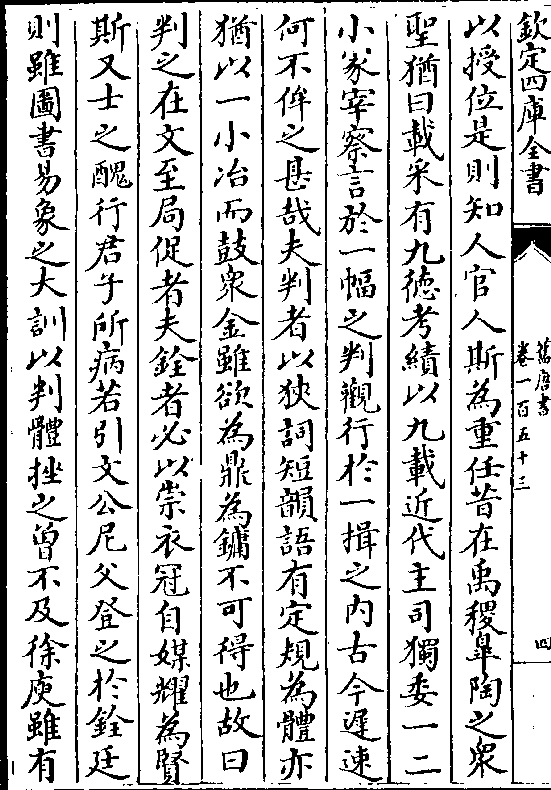 欽定四庫全書
舊唐書
卷一百五十三
四
以授位是則知人官人斯為重任昔在禹稷臯陶之衆
聖猶曰載采有九徳考績以九載近代主司獨委一二
小冢宰察言於一幅之判觀行於一揖之内古今遲速
何不侔之甚哉夫判者以狹詞短韻語有定規為體亦
猶以一小冶而鼓衆金雖欲為鼎為鏞不可得也故曰
判之在文至局促者夫銓者必以崇衣冠自媒耀為賢
斯又士之醜行君子所病若引文公尼父登之於銓廷
則雖圖書易象之大訓以判體挫之曾不及徐庾雖有